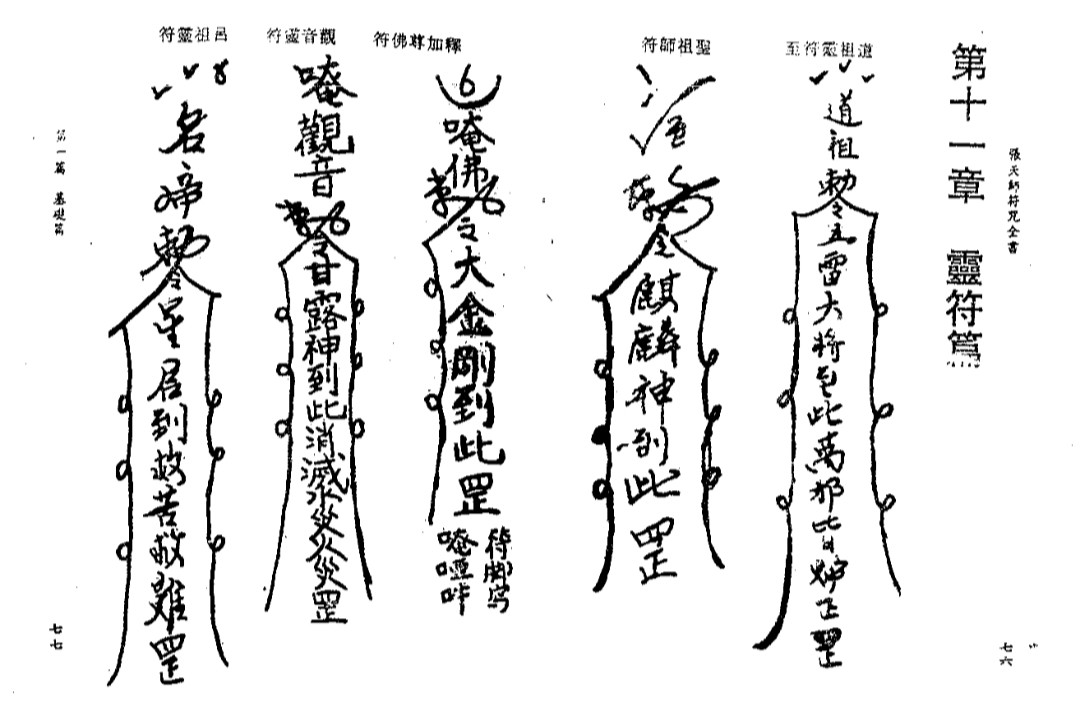 張天師符咒全書
第十一章　靈符篇
道祖靈符至
道祖勅令五雷大將到此萬邪皆歸正罡
聖祖師符
令麒麟神到此罡
七六
釋加尊佛符
唵佛
令大金剛到此罡
符腳寫
唵啞吽
觀音靈符
唵觀音
令甘露神到此消滅水災火災罡
呂祖靈符
勅令星君到救苦救難罡
第一篇　基礎篇
七七